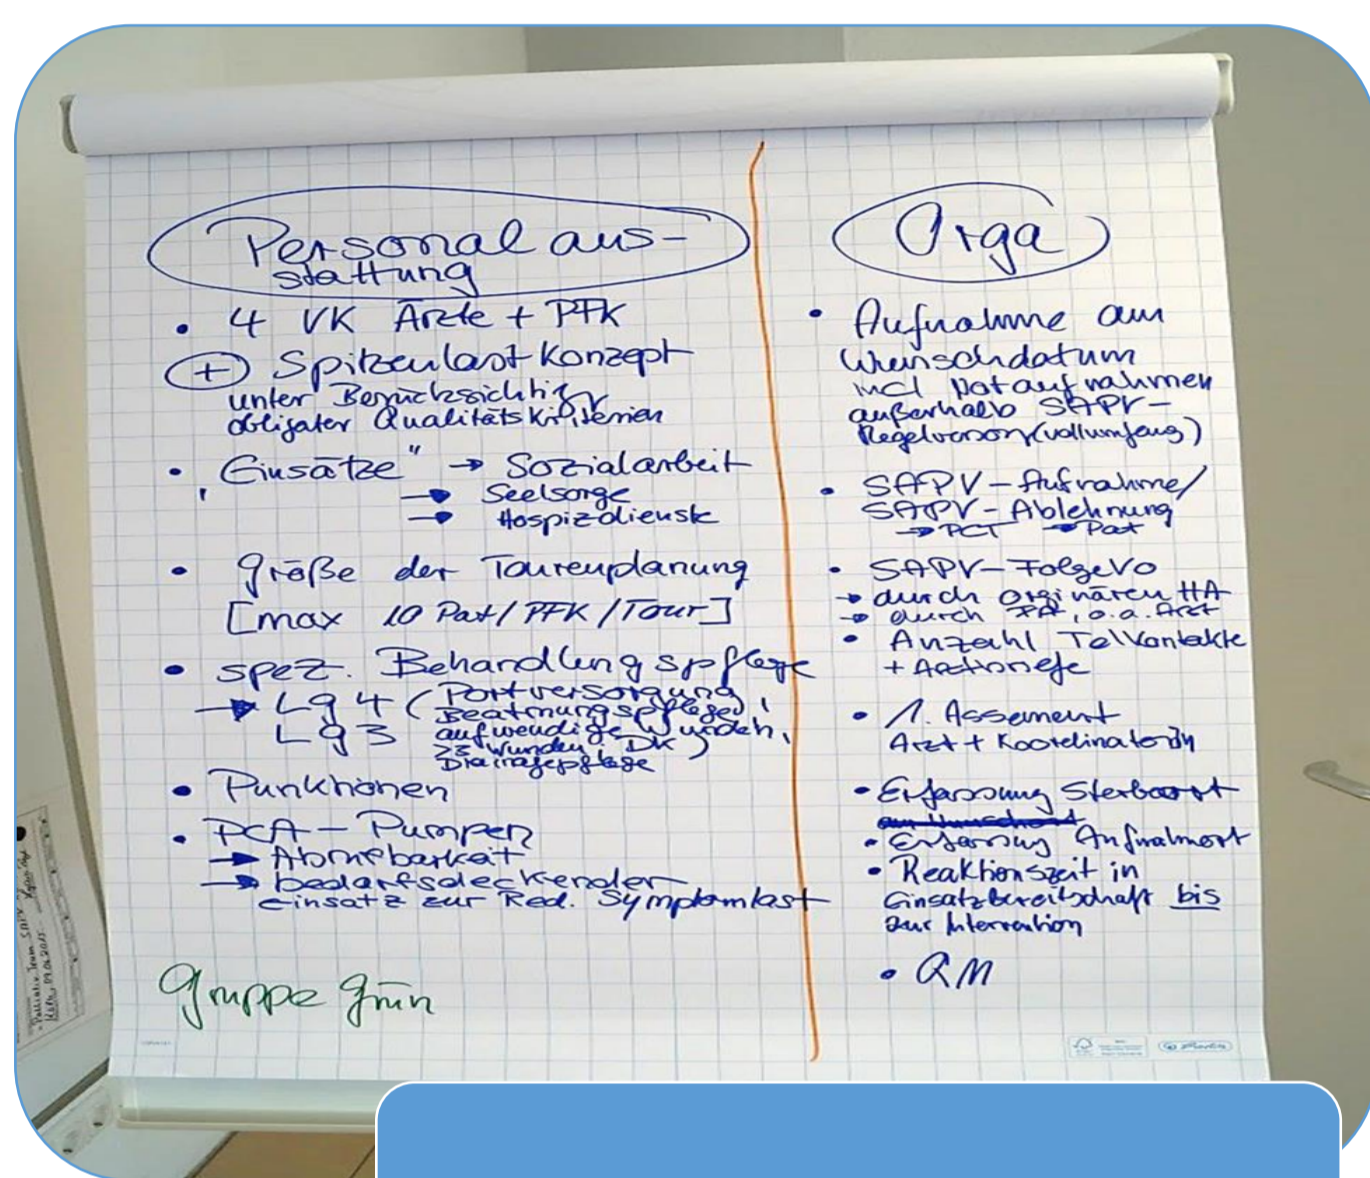 Personalaus-
stattung
• 4 VK Ärzte + PFK
(+) Spitzenlastkonzept
unter Berücksichtig.
obligater Qualitätskriterien
• „Einsätze" → Sozialarbeit
→ Seelsorge
→ Hospizdienste
• Größe der Tourenplanung
[max 10 Pat/PFK/Tour]
• spez. Behandlungspflege
→ LG 4 (Portversorgung,
Beatmungspflege),
LG 3 aufwendige Wunden,
>3 Wunden, DK)
Drainagepflege
• Punktionen
• PCA - Pumpen
→ Abrufbarkeit
→ bedarfsdeckender
Einsatz zur Red. Symptomlast
Gruppe grün
Orga
• Aufnahme am
Wunschdatum
incl Notaufnahmen
außerhalb SAPV-
Regelversorg (vollumfang)
• SAPV-Aufnahme/
SAPV-Ablehnung
→ PCT → Pat
• SAPV-FolgeVO
→ durch orginären HA
→ durch FA, o.a. Arzt
• Anzahl Telkontakte
+ Arztbriefe
• 1. Assement
Arzt + KoordinatorIn
• Erfassung Sterbeort
• Erfassung Aufnahmort
• Reaktionszeit in
Einsatzbereitschaft bis
zur Intervention
• QM